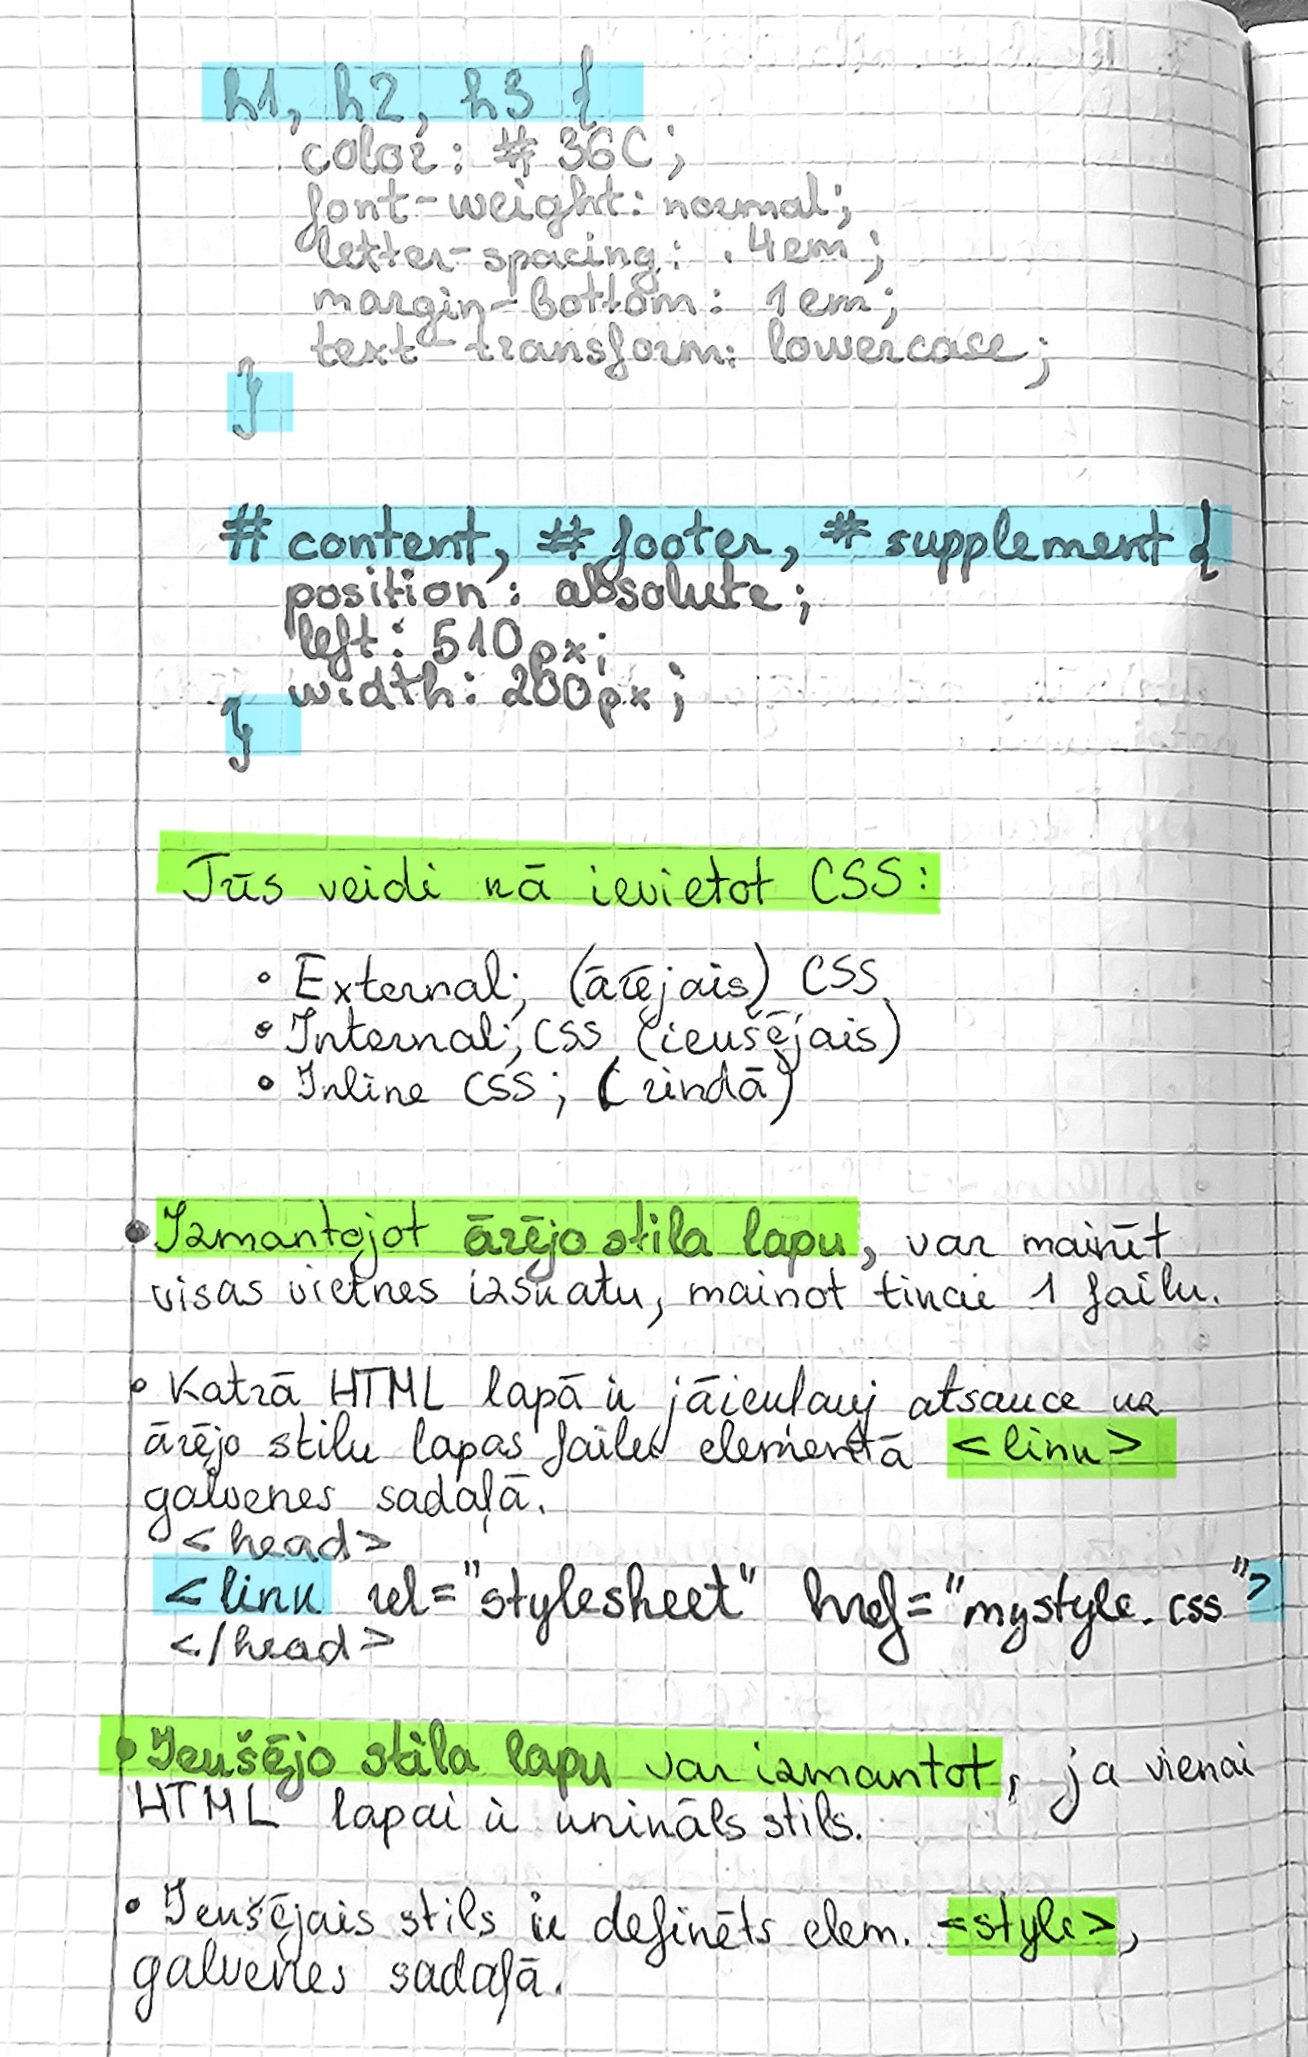 h1, h2, h3 {
color: #36C;
font-weight: normal;
letter-spacing: .4em;
margin-bottom: 1em;
text-transform: lowercase;
}
# content, # footer, # supplement {
position: absolute;
left: 510px;
width: 200px;
}
Trīs veidi kā ievietot CSS:
• External; (ārējais) CSS
• Internal; CSS (iekšējais)
• Inline CSS; (rindā)
• Izmantojot ārējo stila lapu, var mainīt
visas vietnes izskatu, mainot tikai 1 failu.
• Katrā HTML lapā ir jāiekļauj atsauce uz
ārējo stilu lapas failu elementā <link>
galvenes sadaļā.
<head>
<link rel="stylesheet" href="mystyle.css">
</head>
• Iekšējo stila lapu var izmantot, ja vienai
HTML lapai ir unikāls stils.
• Iekšējais stils ir definēts elem. <style>,
galvenes sadaļā.